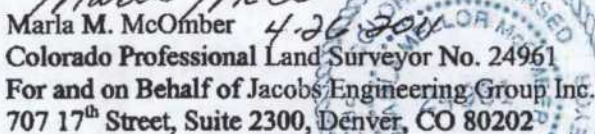 Marla M. McOmber 4-26-2011
Colorado Professional Land Surveyor No. 24961
For and on Behalf of Jacobs Engineering Group Inc.
707 17th Street, Suite 2300, Denver, CO 80202